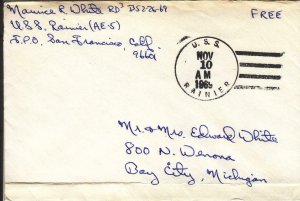 Maurice R. White RD3 D522669
FREE
U.S.S. Rainier (AE-5)
F.P.O. San Francisco, Calif.
96601
U.S.S.
NOV
10
AM
1969
RAINIER
Mr. & Mrs. Edward White
800 N. Wenona
Bay City, Michigan